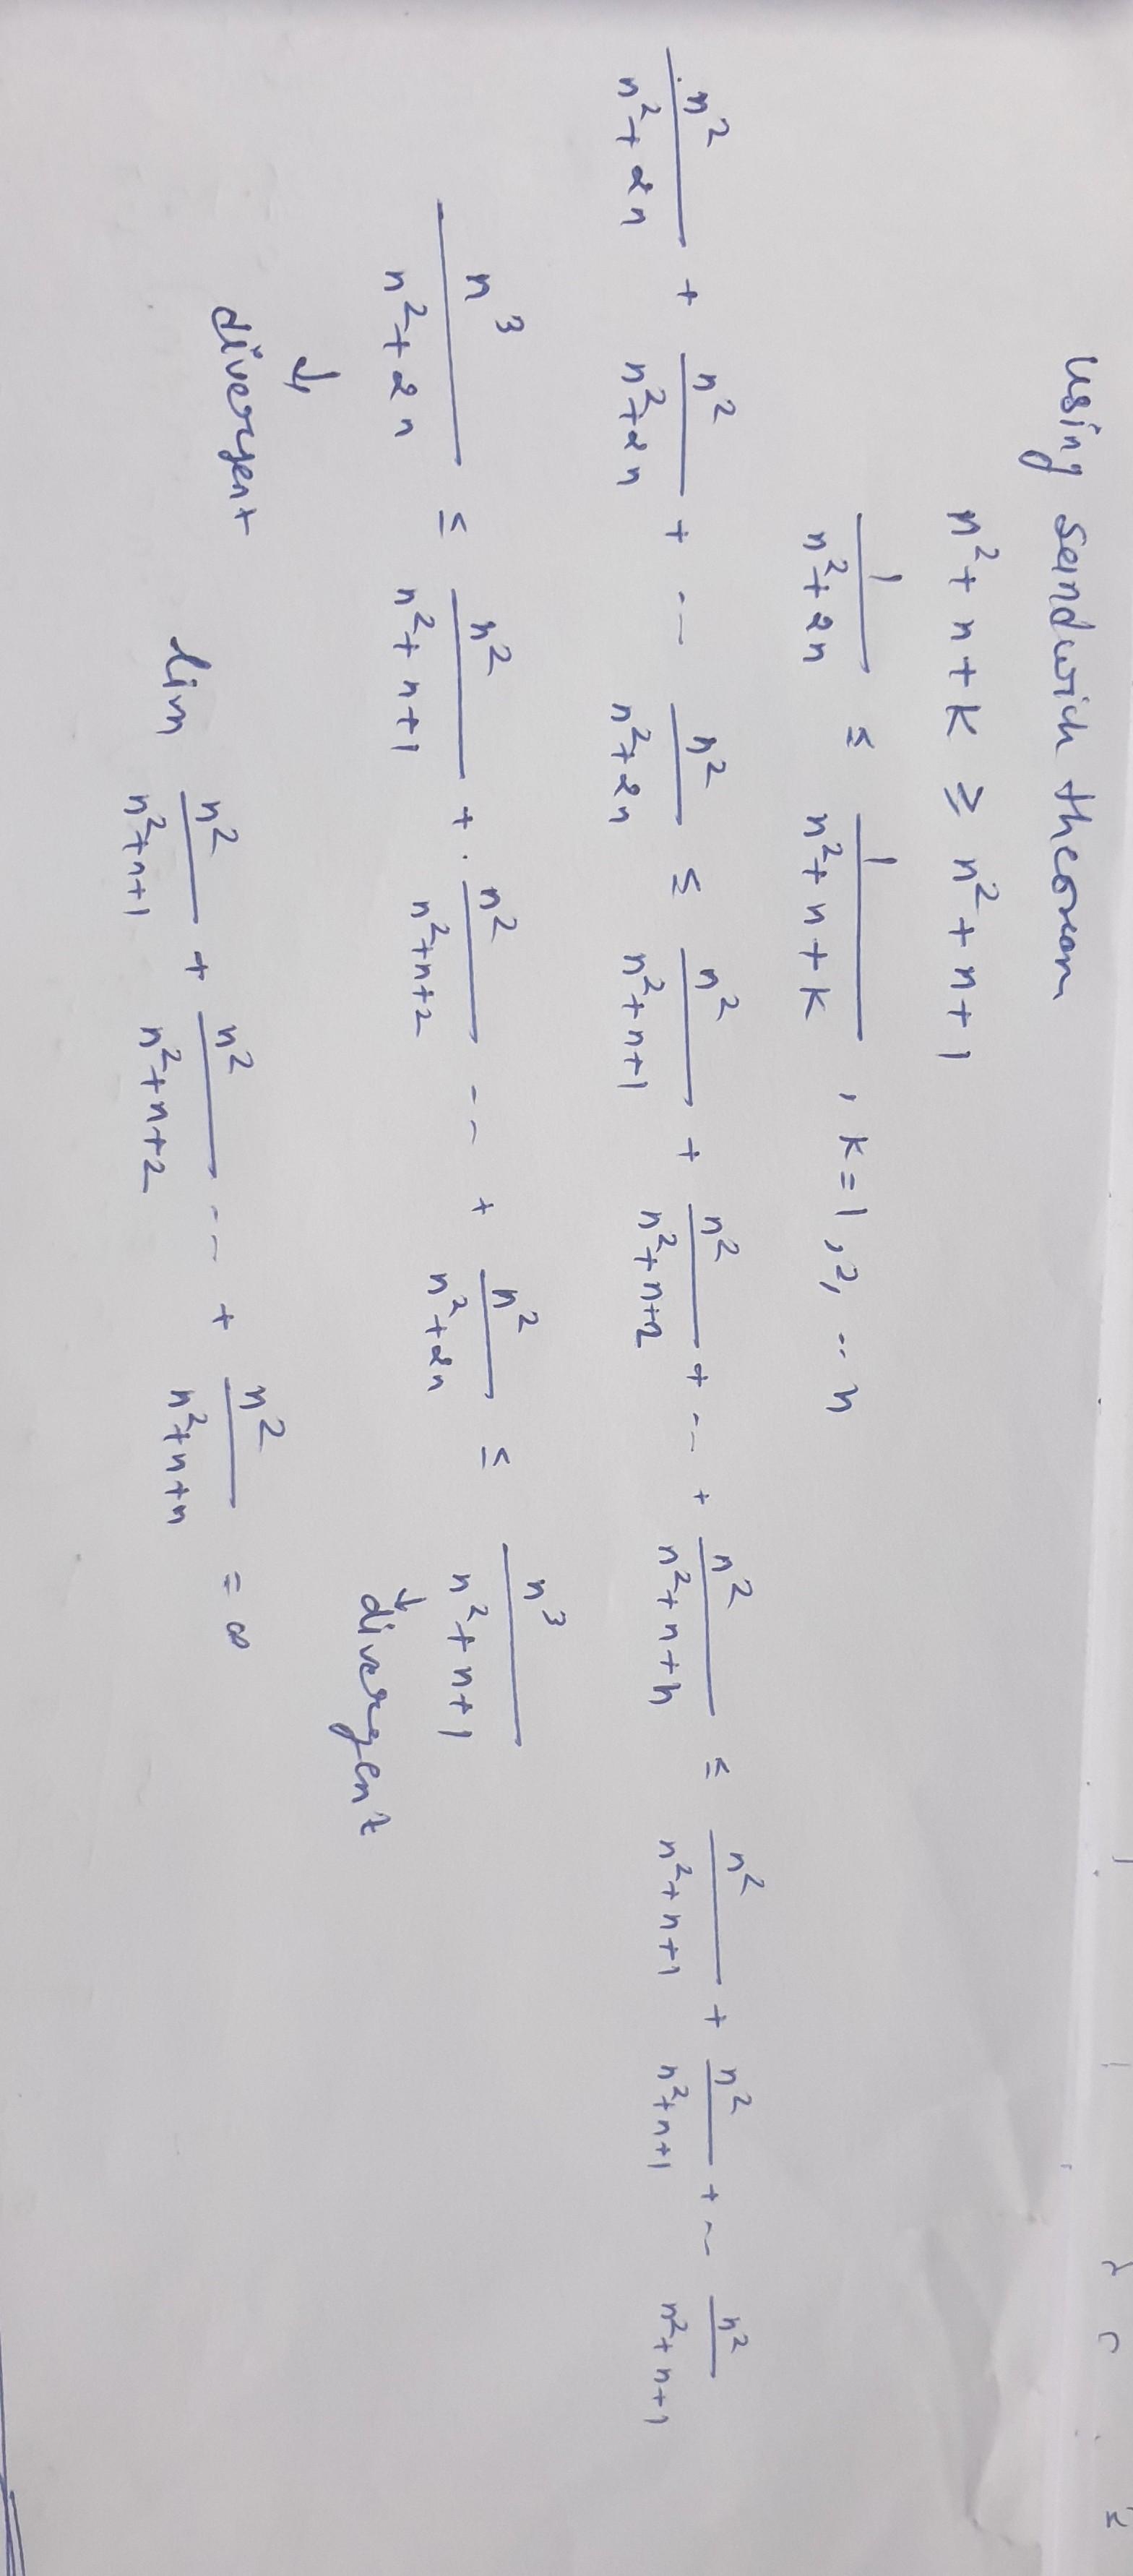 using sandwich theorem
n² + n + k ≥ n² + n + 1
1/(n² + 2n) ≤ 1/(n² + n + k) , k = 1, 2, .. n
n²/(n² + 2n) + n²/(n² + 2n) + ... n²/(n² + 2n) ≤ n²/(n² + n + 1) + n²/(n² + n + 2) + ... + n²/(n² + n + n) ≤ n²/(n² + n + 1) + n²/(n² + n + 1) + ... n²/(n² + n + 1)
n³/(n² + 2n) ≤ n²/(n² + n + 1) + n²/(n² + n + 2) ... + n²/(n² + 2n) ≤ n³/(n² + n + 1)
↓ ↓
divergent divergent
lim n²/(n² + n + 1) + n²/(n² + n + 2) ... + n²/(n² + n + n) = ∞